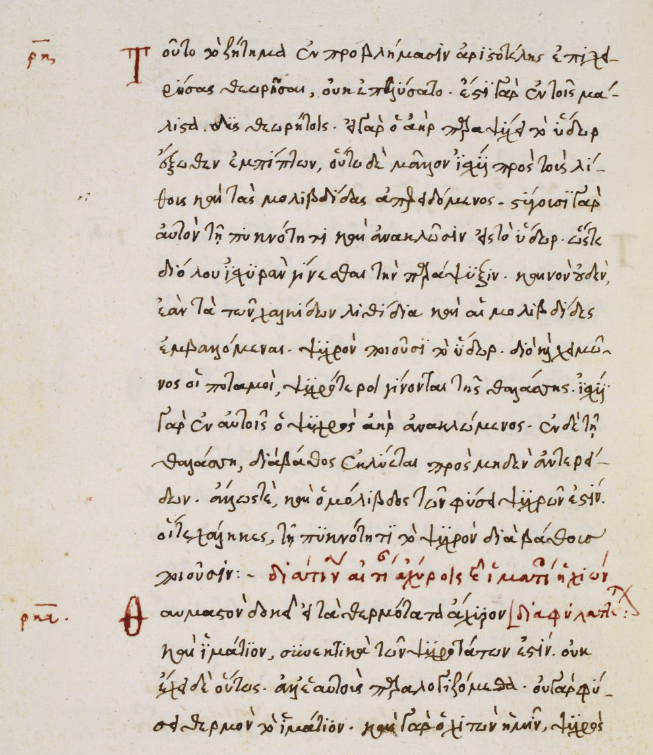 ρπ Τοῦτο τὸ ζήτημα ἐν προβλήμασιν ἀριστοτέλης ἐπιχει-
ρήσας θεωρῆσαι, οὐκ ἐπελύσατο. ἔστι γὰρ ἐν τοῖς μά-
λιστα δυσθεωρήτοις. εἰ γὰρ ὁ ἀὴρ περιψύχει τὸ ὕδωρ
ἔξωθεν ἐμπίπτων, οὕτω δὲ μᾶλλον ἰσχύει πρὸς τοὺς λί-
θους καὶ τὰς μολιβδίδας ἀπερειδόμενος. στέγουσι γὰρ
αὐτὸν τῇ πυκνότητι καὶ ἀνακλῶσιν εἰς τὸ ὕδωρ. ὥστε
διόλου ἰσχυρὰν γίνεσθαι τὴν περίψυξιν. καινὸν οὐδὲν,
ἐὰν τὰ τῶν χαλκίδων λιθίδια καὶ αἱ μολιβδίδες
ἐμβαλλόμεναι. ψυχρὸν ποιοῦσι τὸ ὕδωρ. διὸ καὶ χειμῶ-
νος οἱ ποταμοὶ, ψυχρότεροι γίνονται τῆς θαλάσσης. ἰσχύει
γὰρ ἐν αὐτοῖς ὁ ψυχρὸς ἀὴρ ἀνακλώμενος. ἐν δὲ τῇ
θαλάσσῃ, διὰ βάθος ἐκλύεται πρὸς μηδὲν ἀντερεί-
δων. ἄλλως τὲ, καὶ ὁ μόλιβδος τῶν φύσει ψυχρῶν ἐστίν.
οἵ τε χάλικες, τῇ πυκνότητι τὸ ψυχρὸν διὰ βάθους
ποιοῦσιν:~ διὰ τίν' αἰτί ἀχύροις καὶ ἱματί ἡ χιὼν
ρπα. Θαυμαστὸν δοκεῖ εἰ τὰ θερμότατα ἄχυρον [διαφυλάττεται:
καὶ ἱμάτιον, συνεκτικὰ τῶν ψυχροτάτων ἐστίν. οὐκ
ἔχει δὲ οὕτως. ἀλλ' ἑαυτοὺς παραλογιζόμεθα. οὐ γὰρ φύ-
σει θερμὸν τὸ ἱμάτιον. καὶ γὰρ ἡμῖν, ψυχρὸς